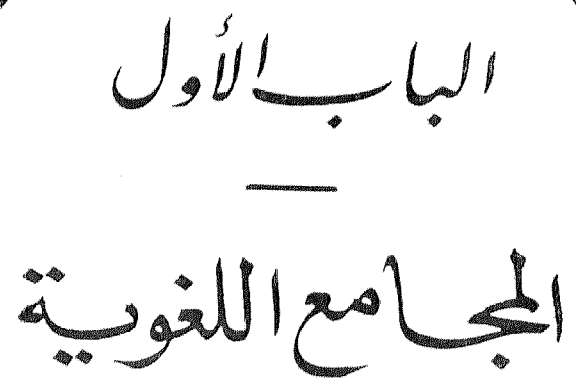 الباب الأول
المجامع اللغوية